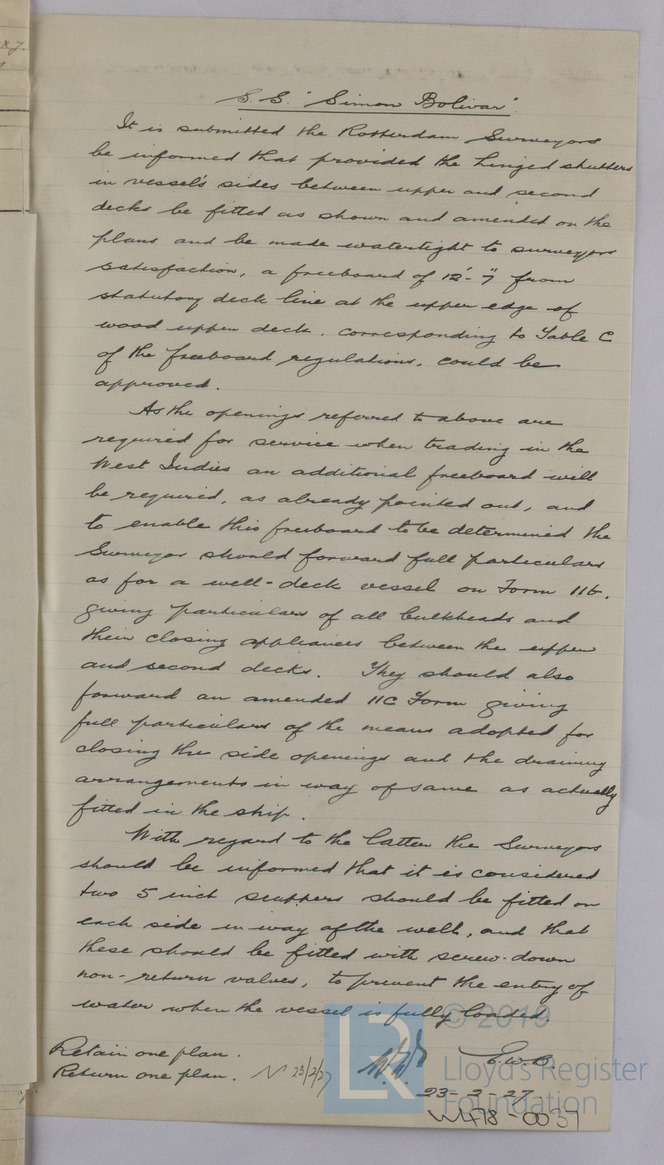 S.S. "Simon Bolivar"
It is submitted the Rotterdam Surveyors
be informed that provided the hinged shutters
in vessel's sides between upper and second
decks be fitted as shown and amended on the
plans and be made watertight to surveyors
satisfaction, a freeboard of 12'-7" from
statutory deck line at the upper edge of
wood upper deck. corresponding to Table C
of the freeboard regulations, could be
approved.
As the openings referred to above are
required for service when trading in the
West Indies an additional freeboard will
be required, as already pointed out, and
to enable this freeboard to be determined the
Surveyor should forward full particulars
as for a well-deck vessel on Form 11b.
giving particulars of all bulkheads and
their closing appliances between the upper
and second decks. They should also
forward an amended 11C Form giving
full particulars of the means adopted for
closing the side openings and the draining
arrangements in way of same as actually
fitted in the ship.
With regard to the latter the Surveyors
should be informed that it is considered
two 5 inch scuppers should be fitted on
each side in way of the well, and that
these should be fitted with screw-down
non-return valves, to prevent the entry of
water when the vessel is fully loaded.
Retain one plan.
Return one plan. 23/2/27
23-2-27
W478-0037
© 2019
LR
Lloyd's Register
Foundation